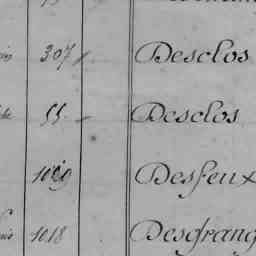 307 Desclos
55 Desclos
Desfeux
1018 Desgrang